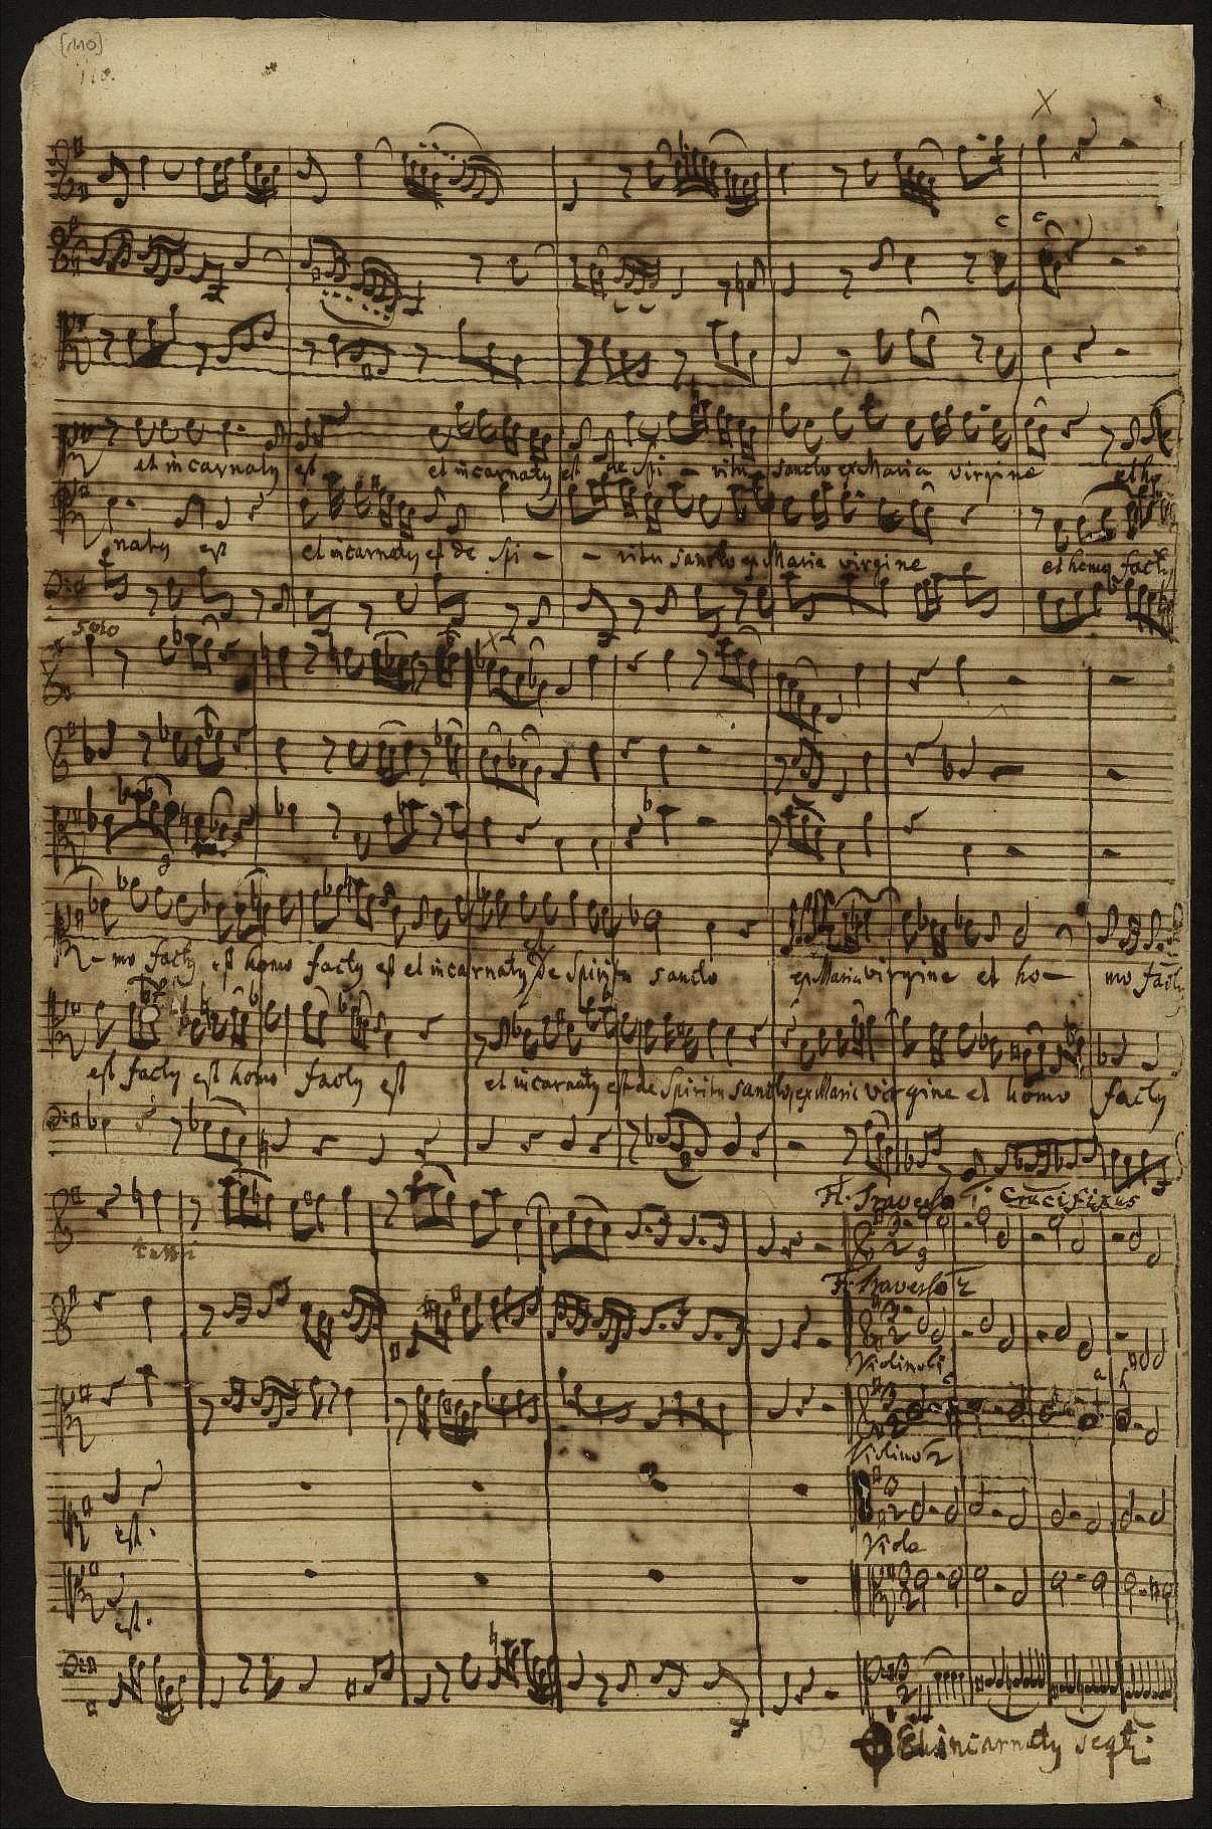 [110]
110.
X
c c
et incarnaty est et incarnaty est de Spi - ritu sancto ex Maria virgine et ho
naty est et incarnaty est de Spi - - ritu sancto ex Maria virgine et homo facty
solo
- mo facty est homo facty est et incarnaty de Spiritu sancto ex Maria virgine et ho - mo facty
est facty est homo facty est et incarnaty est de Spiritu sancto, ex Maria virgine et homo facty
Fl. Traverso 1 Crucifixus
tutti
Fl. Traverso 2
Violino 1
Violino 2
est.
Viola
est.
Et incarnaty seqt: